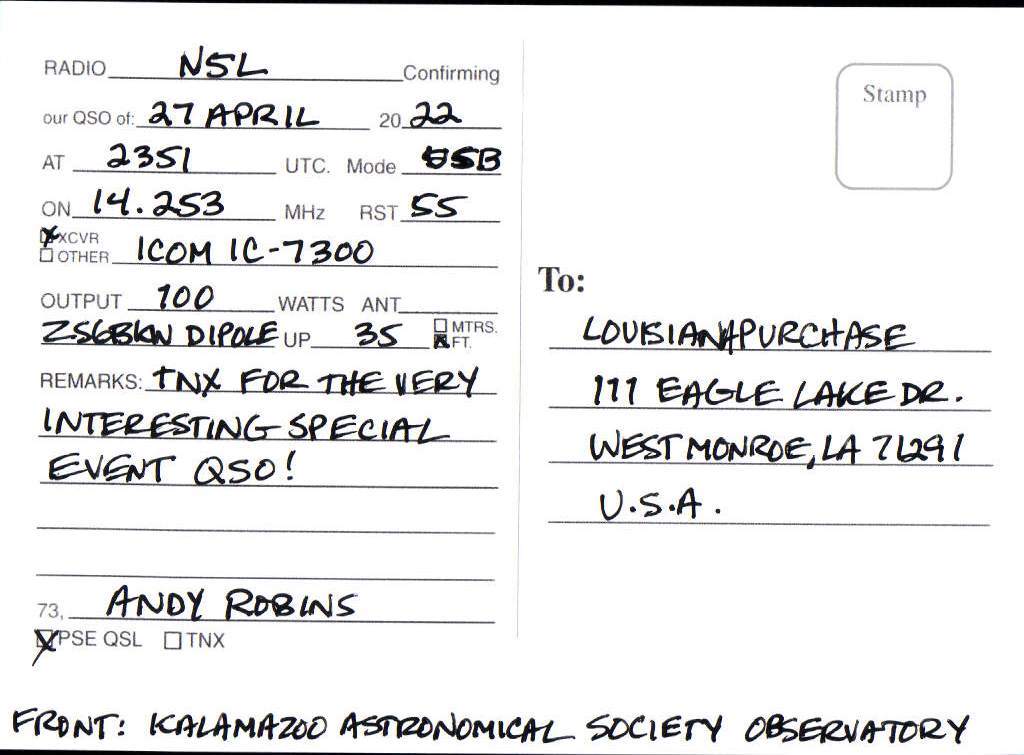 RADIO N5L Confirming
our QSO of: 27 APRIL 20 22
AT 2351 UTC. Mode USB
ON 14.253 MHz RST 55
XCVR
OTHER ICOM IC-7300
OUTPUT 100 WATTS ANT
ZS6BKW DIPOLE UP 35 MTRS.
FT.
REMARKS: TNX FOR THE VERY
INTERESTING SPECIAL
EVENT QSO!
73, ANDY ROBINS
PSE QSL TNX
Stamp
To:
LOUISIANA PURCHASE
111 EAGLE LAKE DR.
WEST MONROE, LA 71291
U.S.A.
FRONT: KALAMAZOO ASTRONOMICAL SOCIETY OBSERVATORY